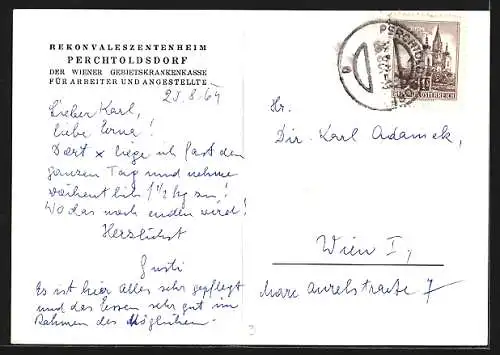 REKONVALESZENTENHEIM
PERCHTOLDSDORF
DER WIENER GEBIETSKRANKENKASSE
FÜR ARBEITER UND ANGESTELLTE
25.8.64
Lieber Karl,
liebe Erna!
Dort x liege ich fast den
ganzen Tag und nehme
wöchentlich 1 1/2 kg zu!
Wo das noch enden wird!
Herzlichst
Gusti
Es ist hier alles sehr gepflegt
und das Essen sehr gut im
Rahmen des Möglichen.
Hr.
Dir. Karl Adamek,
Wien I,
Marc Aurelstraße 7
REPUBLIK ÖSTERREICH